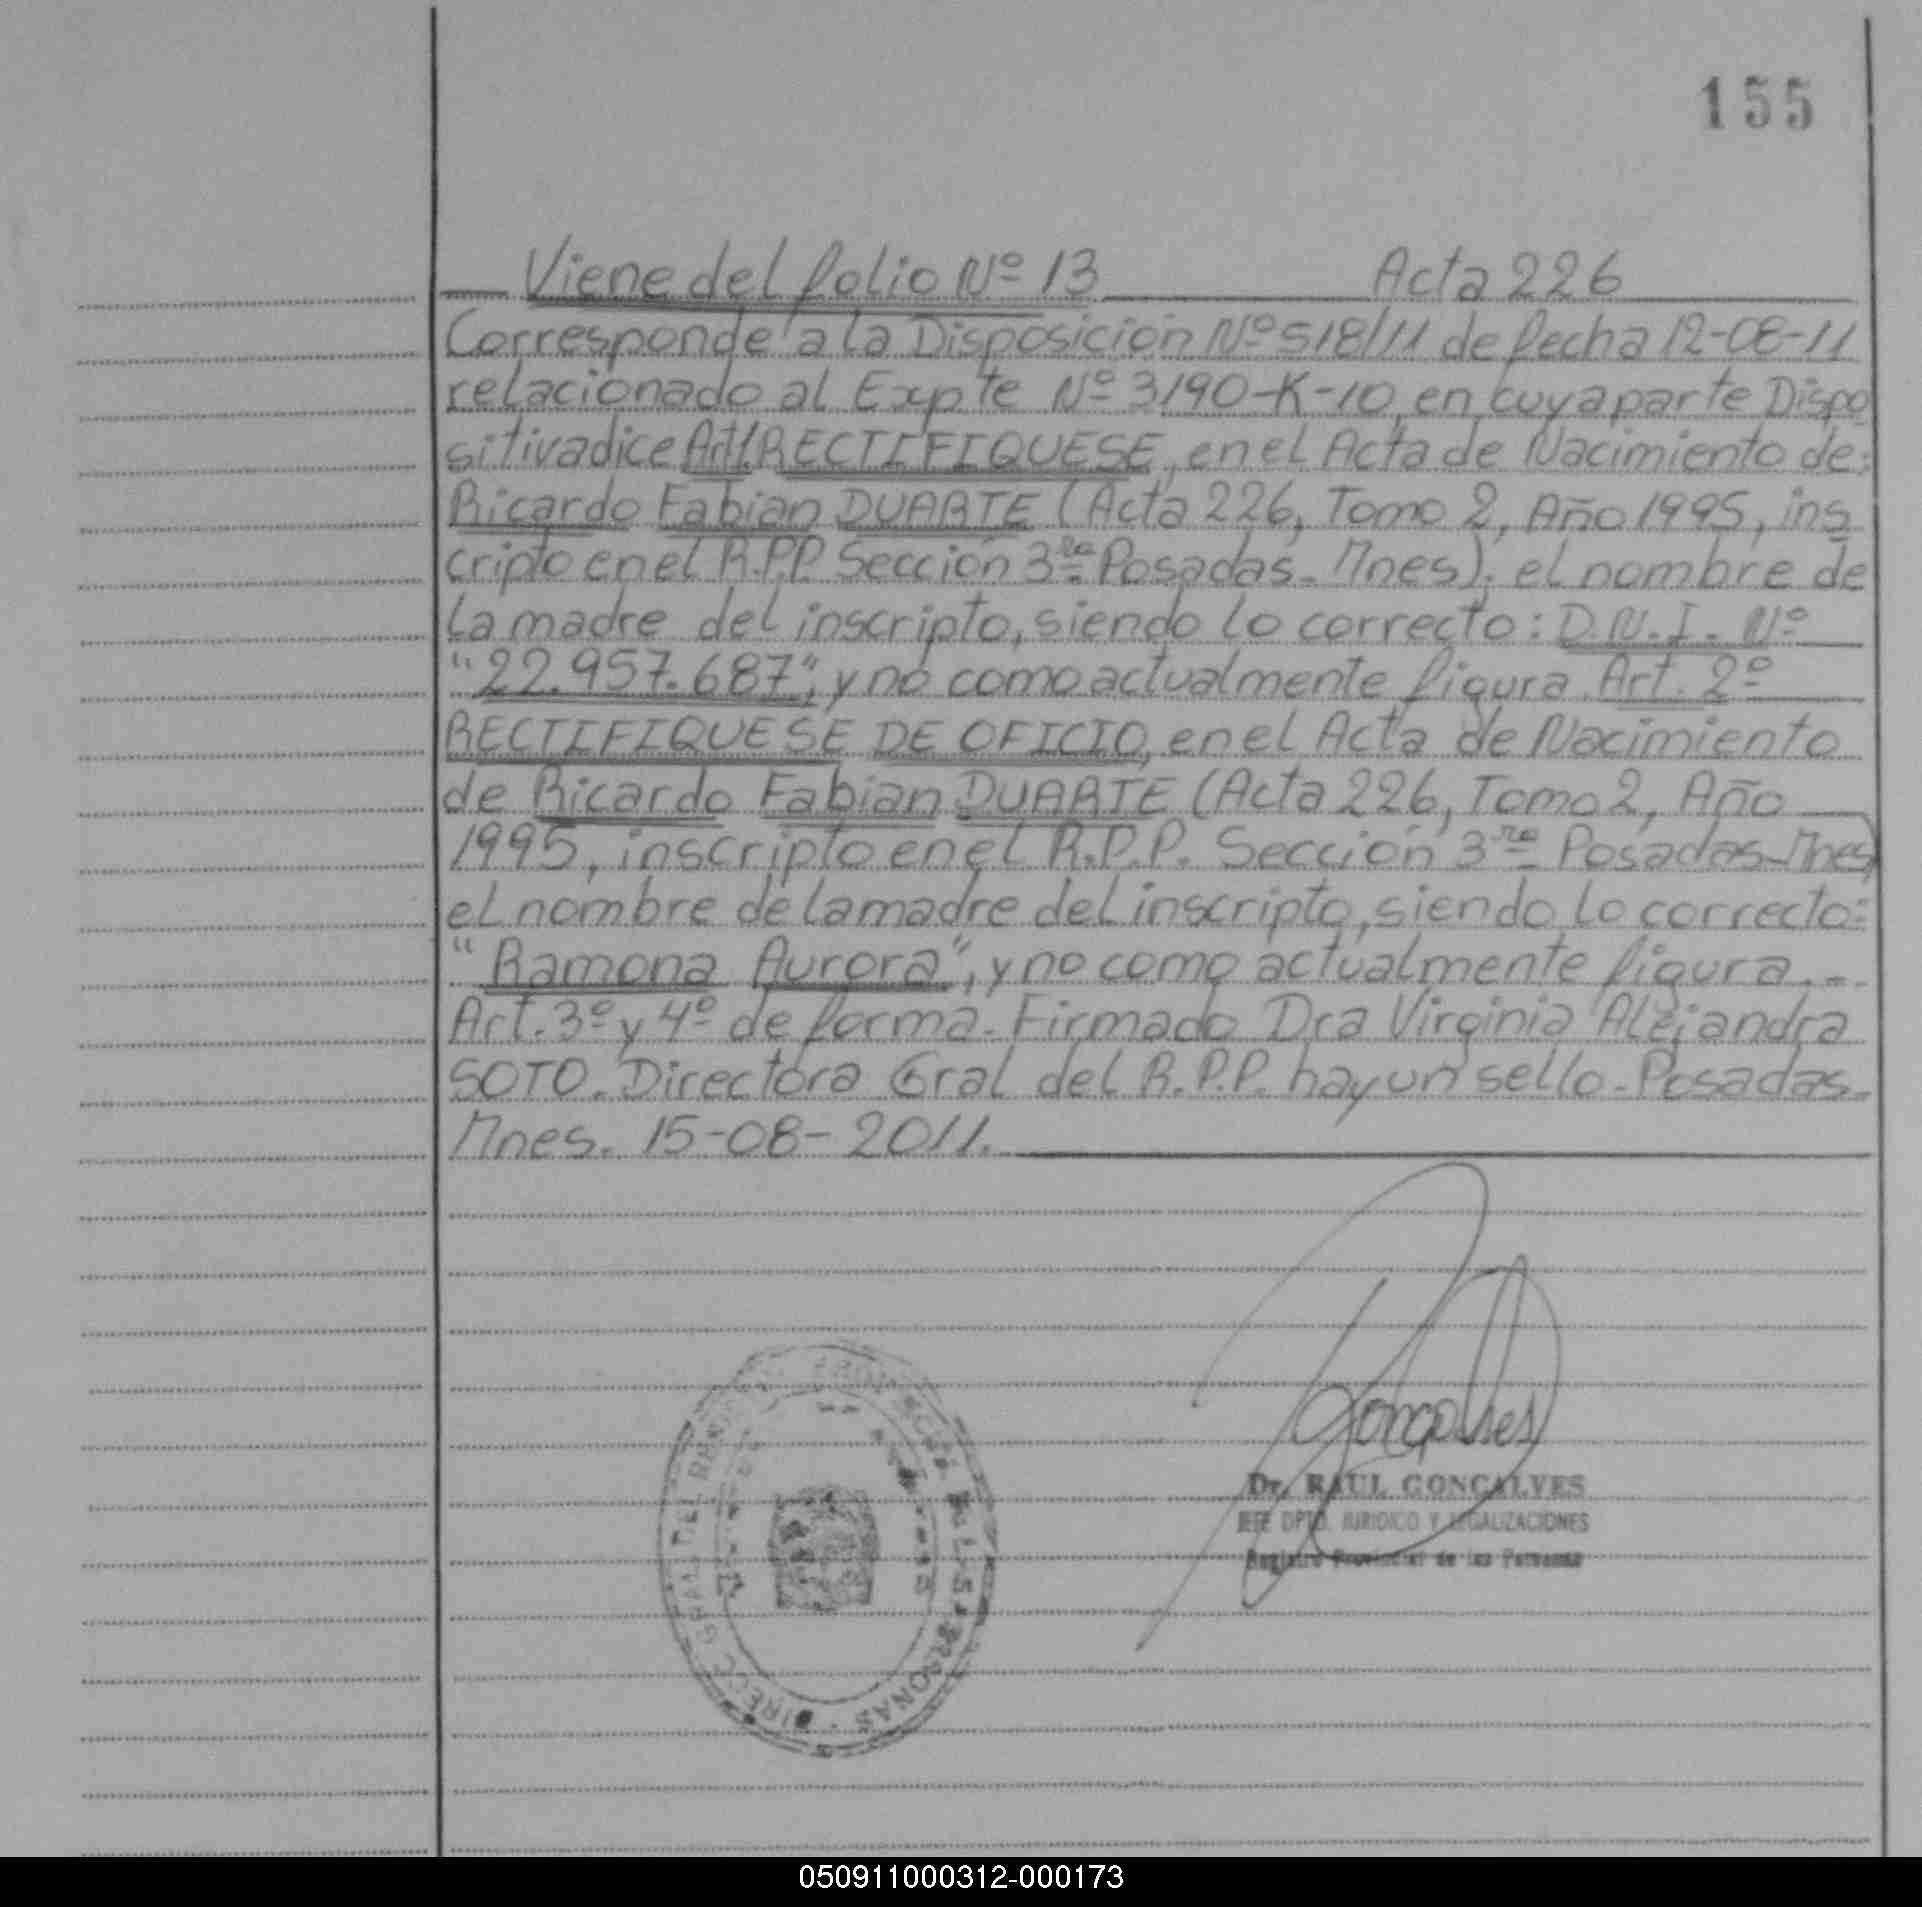 155
Viene del folio Nº 13 Acta 226
Corresponde a la Disposición Nº 518/11 de fecha 12-08-11
relacionado al Expte Nº 3190-K-10, en cuya parte Dispo
sitiva dice Art 1 RECTIFIQUESE, en el Acta de Nacimiento de:
Ricardo Fabian DUARTE (Acta 226, Tomo 2, Año 1995, ins
cripto en el R.P.P. Sección 3ra Posadas - Mnes). el nombre de
la madre del inscripto, siendo lo correcto: D.N.I. Nº
"22.957.687", y no como actualmente figura. Art. 2º
RECTIFIQUESE DE OFICIO, en el Acta de Nacimiento
de Ricardo Fabian DUARTE (Acta 226, Tomo 2, Año
1995, inscripto en el R.P.P. Sección 3ra Posadas-Mnes)
el nombre de la madre del inscripto, siendo lo correcto:
"Ramona Aurora", y no como actualmente figura.--
Art. 3º y 4º de forma. Firmado Dra Virginia Alejandra
SOTO. Directora Gral del R.P.P. hay un sello - Posadas-
Mnes. 15-08-2011.
Goncalves
Dr. RAUL GONCALVES
JEFE DPTO. JURIDICO Y LEGALIZACIONES
Registro Provincial de las Personas
DIREC. GRAL. DEL PERSONAS
050911000312-000173